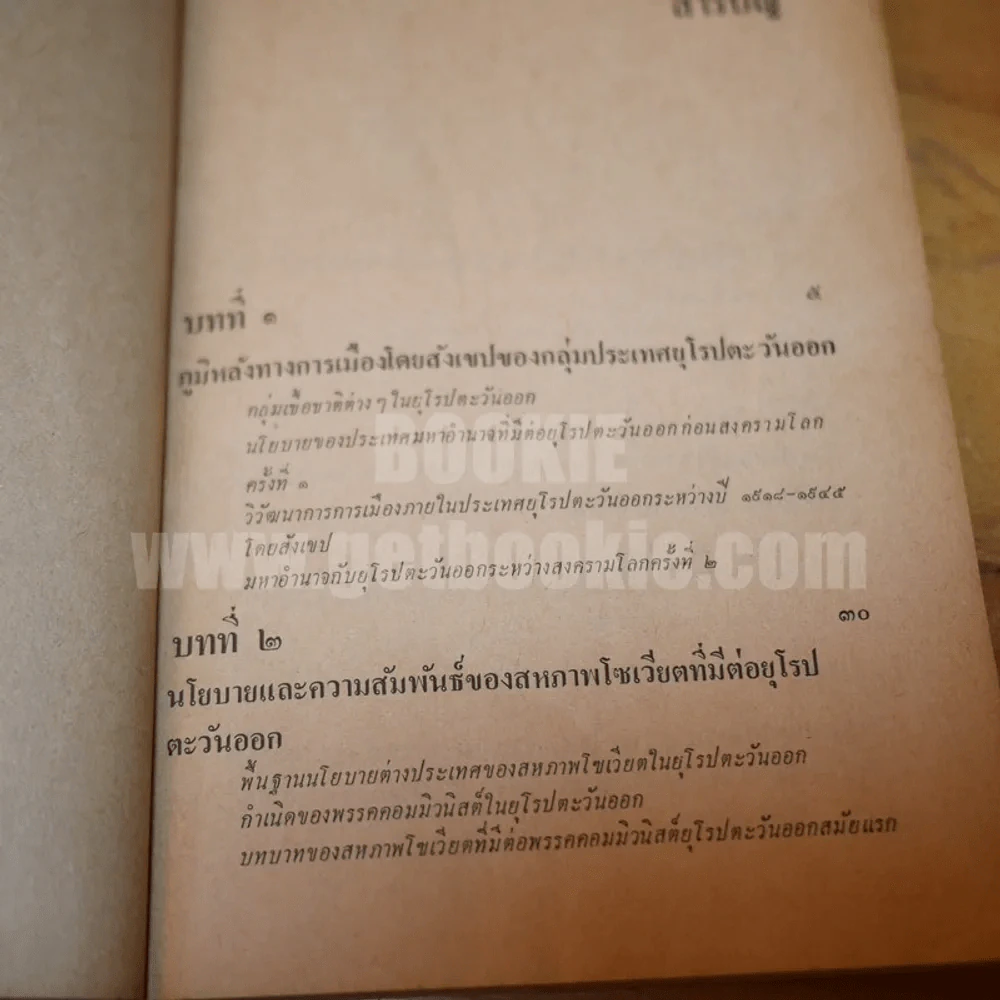 สารบัญ
บทที่ ๑
๕
ภูมิหลังทางการเมืองโดยสังเขปของกลุ่มประเทศยุโรปตะวันออก
กลุ่มเชื้อชาติต่าง ๆ ในยุโรปตะวันออก
นโยบายของประเทศมหาอำนาจที่มีต่อยุโรปตะวันออกก่อนสงครามโลก
ครั้งที่ ๑
วิวัฒนาการการเมืองภายในประเทศยุโรปตะวันออกระหว่างปี ๑๙๑๘-๑๙๔๕
โดยสังเขป
มหาอำนาจกับยุโรปตะวันออกระหว่างสงครามโลกครั้งที่ ๒
บทที่ ๒
๓๐
นโยบายและความสัมพันธ์ของสหภาพโซเวียตที่มีต่อยุโรป
ตะวันออก
พื้นฐานนโยบายต่างประเทศของสหภาพโซเวียตในยุโรปตะวันออก
กำเนิดของพรรคคอมมิวนิสต์ในยุโรปตะวันออก
บทบาทของสหภาพโซเวียตที่มีต่อพรรคคอมมิวนิสต์ยุโรปตะวันออกสมัยแรก
BOOKIE
www.getbookie.com